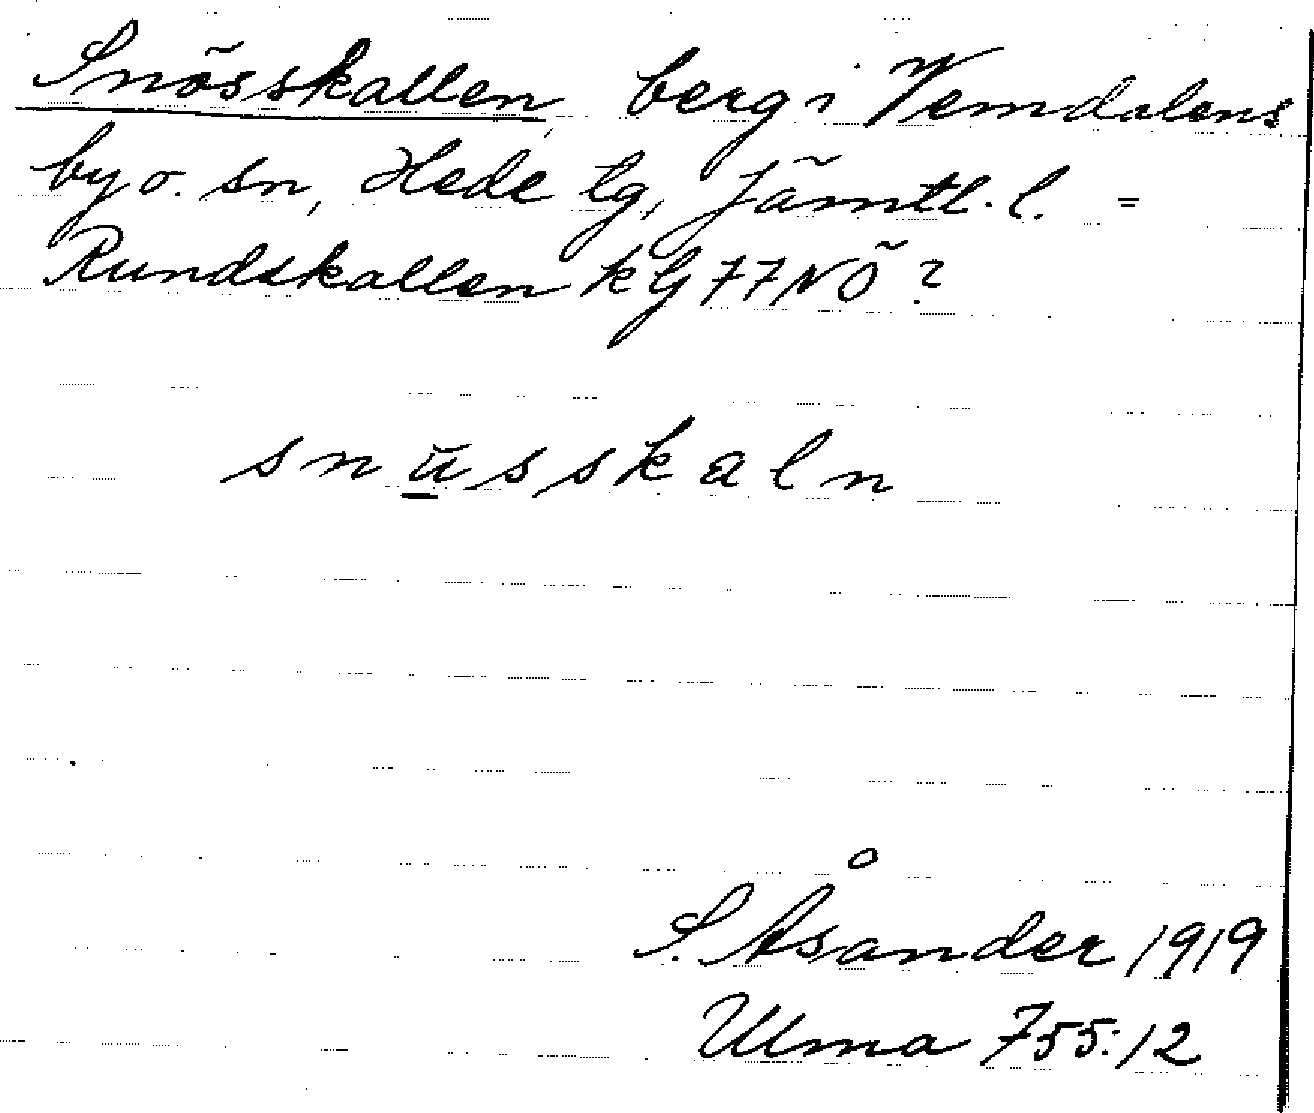 Snösskallen, berg i Vemdalens
by o. sn, Hede tg, Jämtl. l. =
Rundskallen kbl 77 NÖ?
snu̲sskaln
S. Åsander 1919
Ulma 755:12